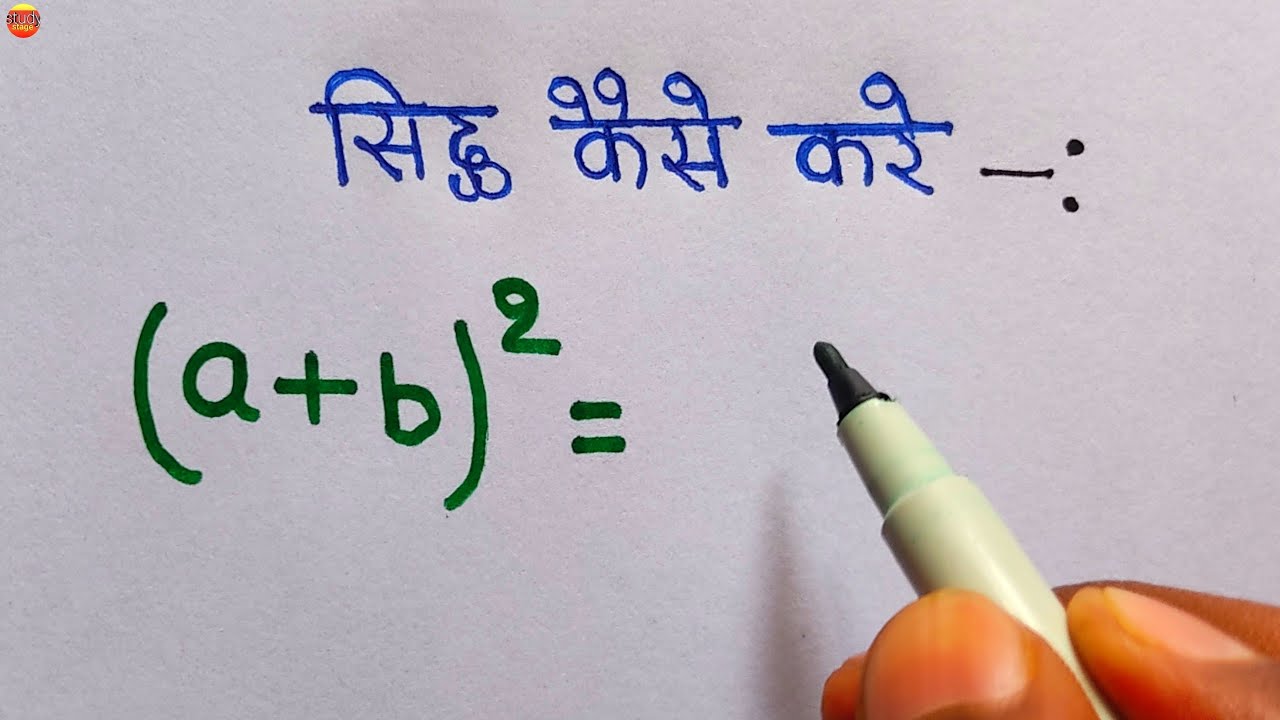 study
stage
सिद्ध कैसे करे -:
(a+b)² =